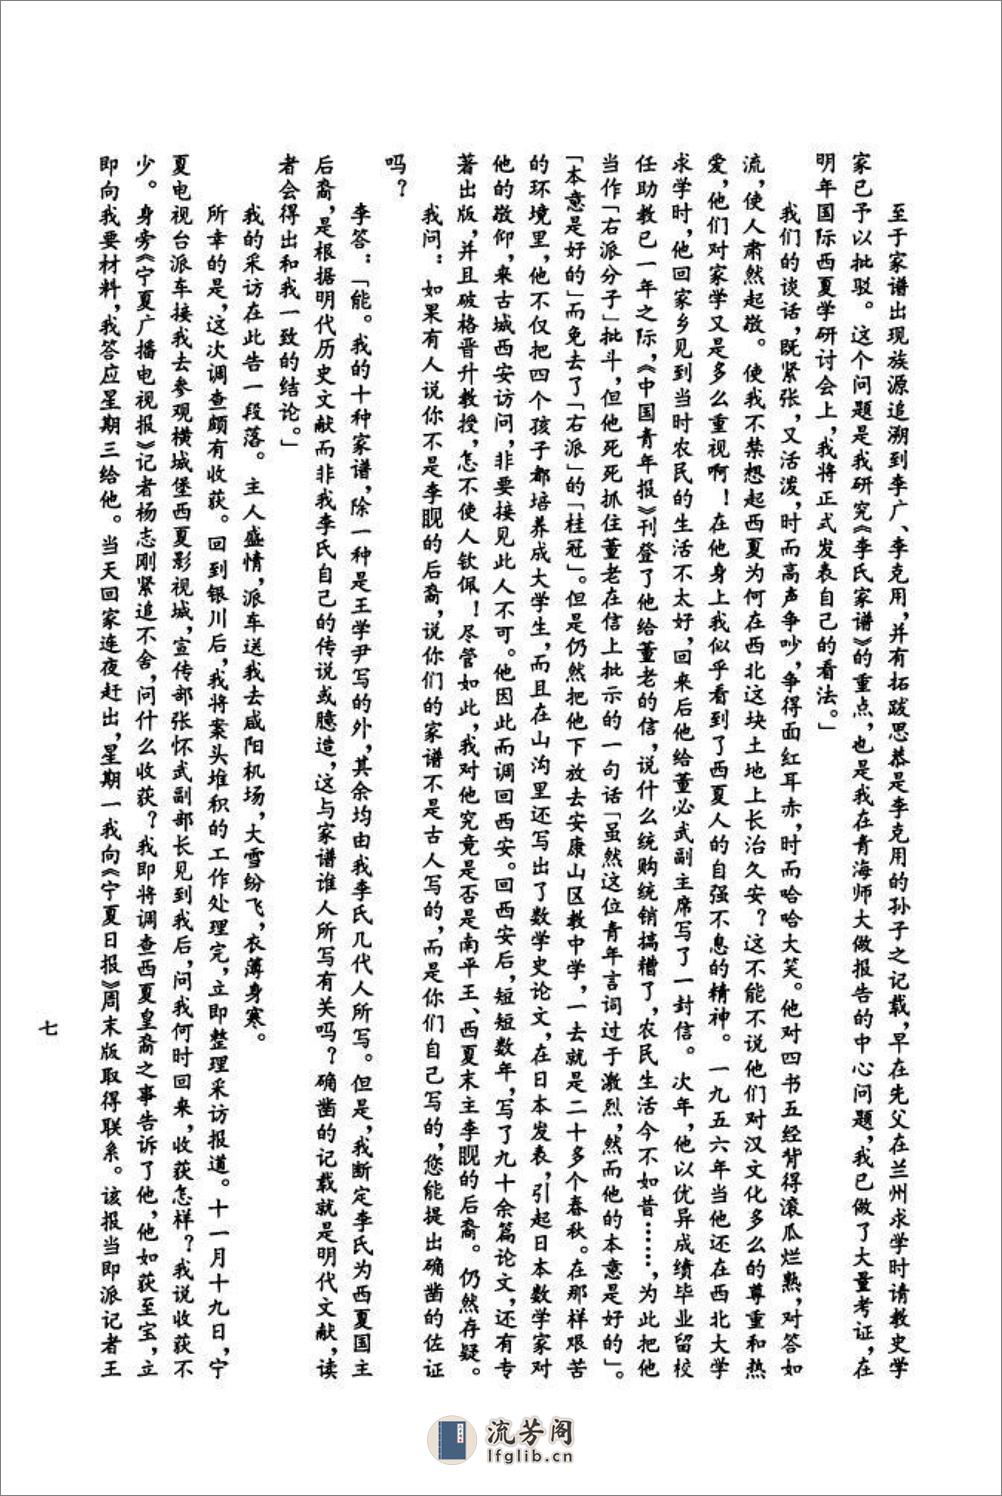 至于家谱出现族源追溯到李广、李克用，并有拓跋思恭是李克用的孙子之记载，早在先父在兰州求学时请教史学
家已予以批驳。这个问题是我研究《李氏家谱》的重点，也是我在青海师大做报告的中心问题，我已做了大量考证，在
明年国际西夏学研讨会上，我将正式发表自己的看法。」
我们的谈话，既紧张，又活泼，时而高声争吵，争得面红耳赤，时而哈哈大笑。他对四书五经背得滚瓜烂熟，对答如
流，使人肃然起敬。使我不禁想起西夏为何在西北这块土地上长治久安？这不能不说他们对汉文化多么的尊重和热
爱，他们对家学又是多么重视啊！在他身上我似乎看到了西夏人的自强不息的精神。一九五六年当他还在西北大学
求学时，他回家乡见到当时农民的生活不太好，回来后他给董必武副主席写了一封信。次年，他以优异成绩毕业留校
任助教已一年之际，《中国青年报》刊登了他给董老的信，说什么统购统销搞糟了，农民生活今不如昔……，为此把他
当作「右派分子」批斗，但他死死抓住董老在信上批示的一句话「虽然这位青年言词过于激烈，然而他的本意是好的」。
「本意是好的」而免去了「右派」的「桂冠」。但是仍然把他下放去安康山区教中学，一去就是二十多个春秋。在那样艰苦
的环境里，他不仅把四个孩子都培养成大学生，而且在山沟里还写出了数学史论文，在日本发表，引起日本数学家对
他的敬仰，来古城西安访问，非要接见此人不可。他因此而调回西安。回西安后，短短数年，写了九十余篇论文，还有专
著出版，并且破格晋升教授，怎不使人钦佩！尽管如此，我对他究竟是否是南平王、西夏末主李睍的后裔。仍然存疑。
我问：如果有人说你不是李睍的后裔，说你们的家谱不是古人写的，而是你们自己写的，您能提出确凿的佐证
吗？
李答：「能。我的十种家谱，除一种是王学尹写的外，其余均由我李氏几代人所写。但是，我断定李氏为西夏国主
后裔，是根据明代历史文献而非我李氏自己的传说或臆造，这与家谱谁人所写有关吗？确凿的记载就是明代文献，读
者会得出和我一致的结论。」
我的采访在此告一段落。主人盛情，派车送我去咸阳机场，大雪纷飞，衣薄身寒。
所幸的是，这次调查颇有收获。回到银川后，我将案头堆积的工作处理完，立即整理采访报道。十一月十九日，宁
夏电视台派车接我去参观横城堡西夏影视城，宣传部张怀武副部长见到我后，问我何时回来，收获怎样？我说收获不
少。身旁《宁夏广播电视报》记者杨志刚紧追不舍，问什么收获？我即将调查西夏皇裔之事告诉了他，他如获至宝，立
即向我要材料，我答应星期三给他。当天回家连夜赶出，星期一我向《宁夏日报》周末版取得联系。该报当即派记者王
七
流芳阁
lfglib.cn